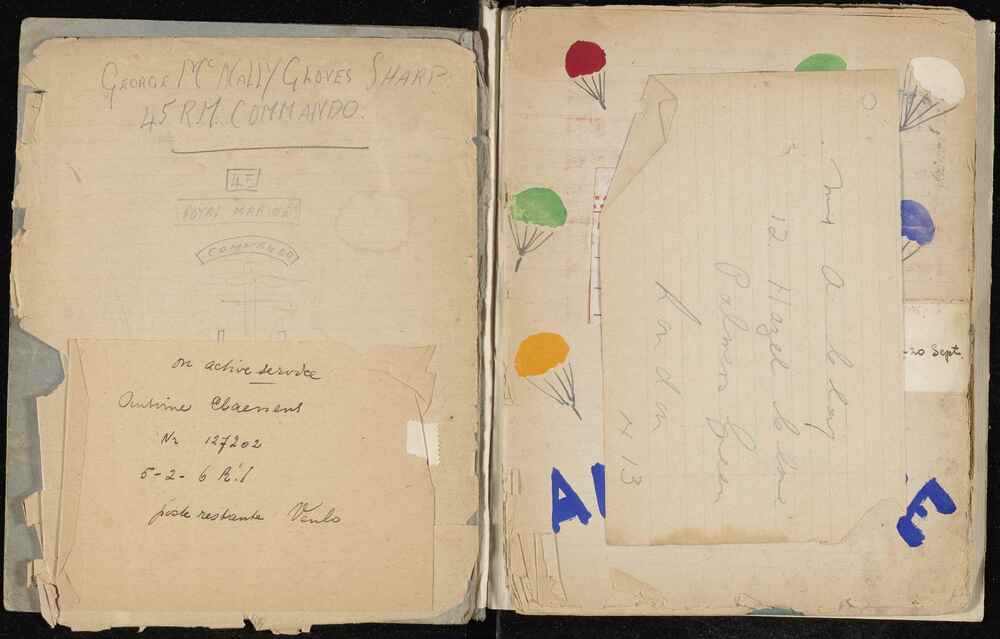 GEORGE McNALLY GLOVES SHARP
45 RM. COMMANDO.
45
ROYAL MARINES
COMMANDO
on active service
Antoine Claessens
Nr 127202
5-2-6 R.I
poste restante Venlo
20 Sept.
A
E
Mr A
12. Hazel
Palmers Green
London
N 13